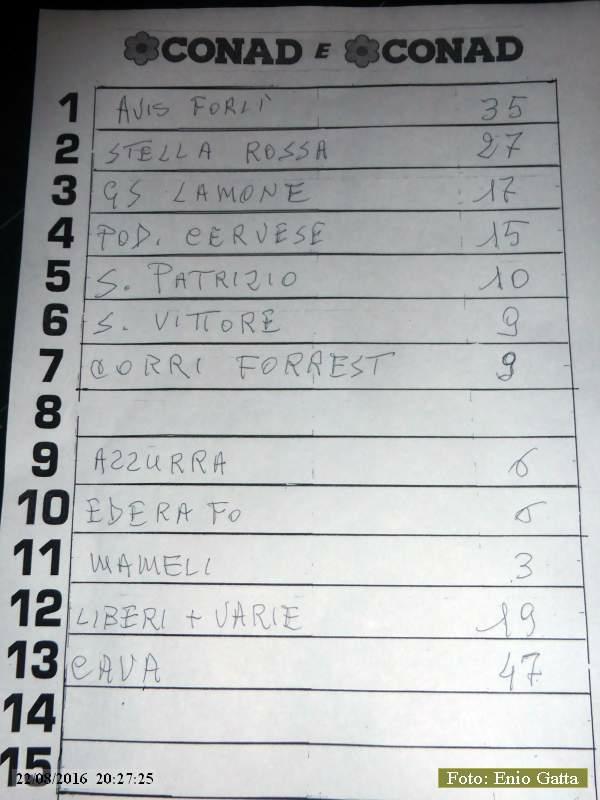 CONAD E CONAD
1 AVIS FORLÌ 35
2 STELLA ROSSA 27
3 GS LAMONE 17
4 POD. CERVESE 15
5 S. PATRIZIO 10
6 S. VITTORE 9
7 CORRI FORREST 9
8
9 AZZURRA 6
10 EDERA FO 6
11 MAMELI 3
12 LIBERI + VARIE 19
13 CAVA 47
14
15
22/08/2016 20:27:25
Foto: Enio Gatta